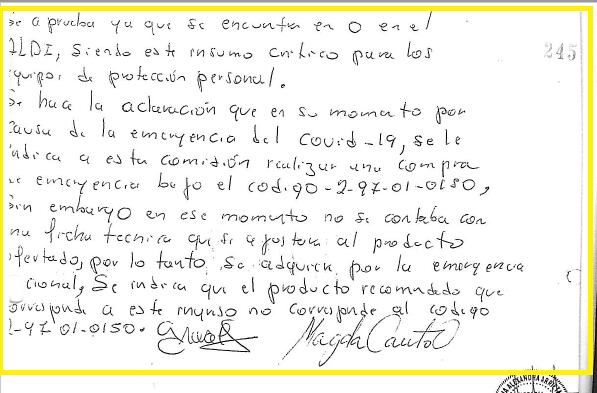 se aprueba ya que se encuentra en 0 en el
ALDI, siendo este insumo critico para los
equipos de protección personal.
245
Se hace la aclaración que en su momento por
causa de la emergencia del Covid-19, se le
indica a esta comisión realizar una compra
de emergencia bajo el codigo-2-97-01-0150,
Sin embargo en ese momento no se contaba con
una ficha tecnica que se ajustara al producto
ofertado, por lo tanto, se adquiere por la emergencia
cional, Se indica que el producto recomendado que
corresponde a este insumo no corresponde al codigo
2-97-01-0150. Magda Canto